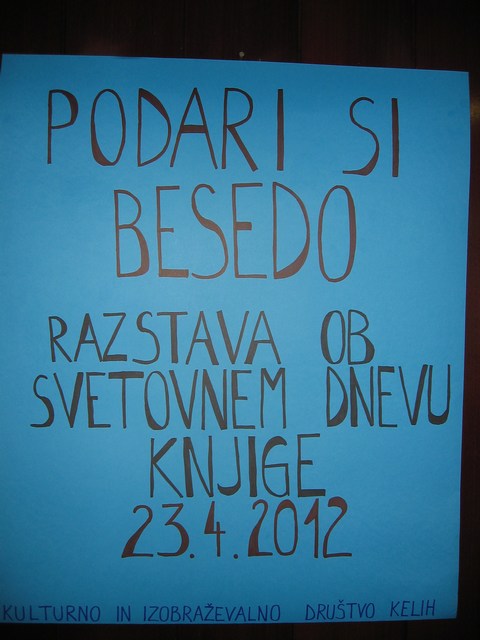 PODARI SI
BESEDO
RAZSTAVA OB
SVETOVNEM DNEVU
KNJIGE
23.4.2012
KULTURNO IN IZOBRAŽEVALNO DRUŠTVO KELIH